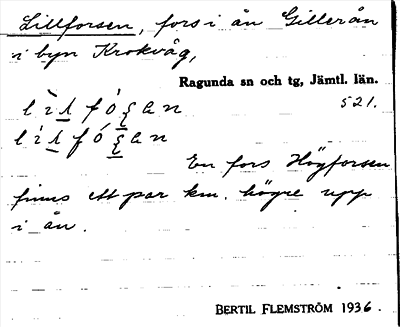 Lillforsen, fors i ån Gillerån
i byn Krokvåg,
Ragunda sn och tg, Jämtl. län.
521.
En fors Högforsen
finns ett par km. högre upp
i ån.
BERTIL FLEMSTRÖM 1936.